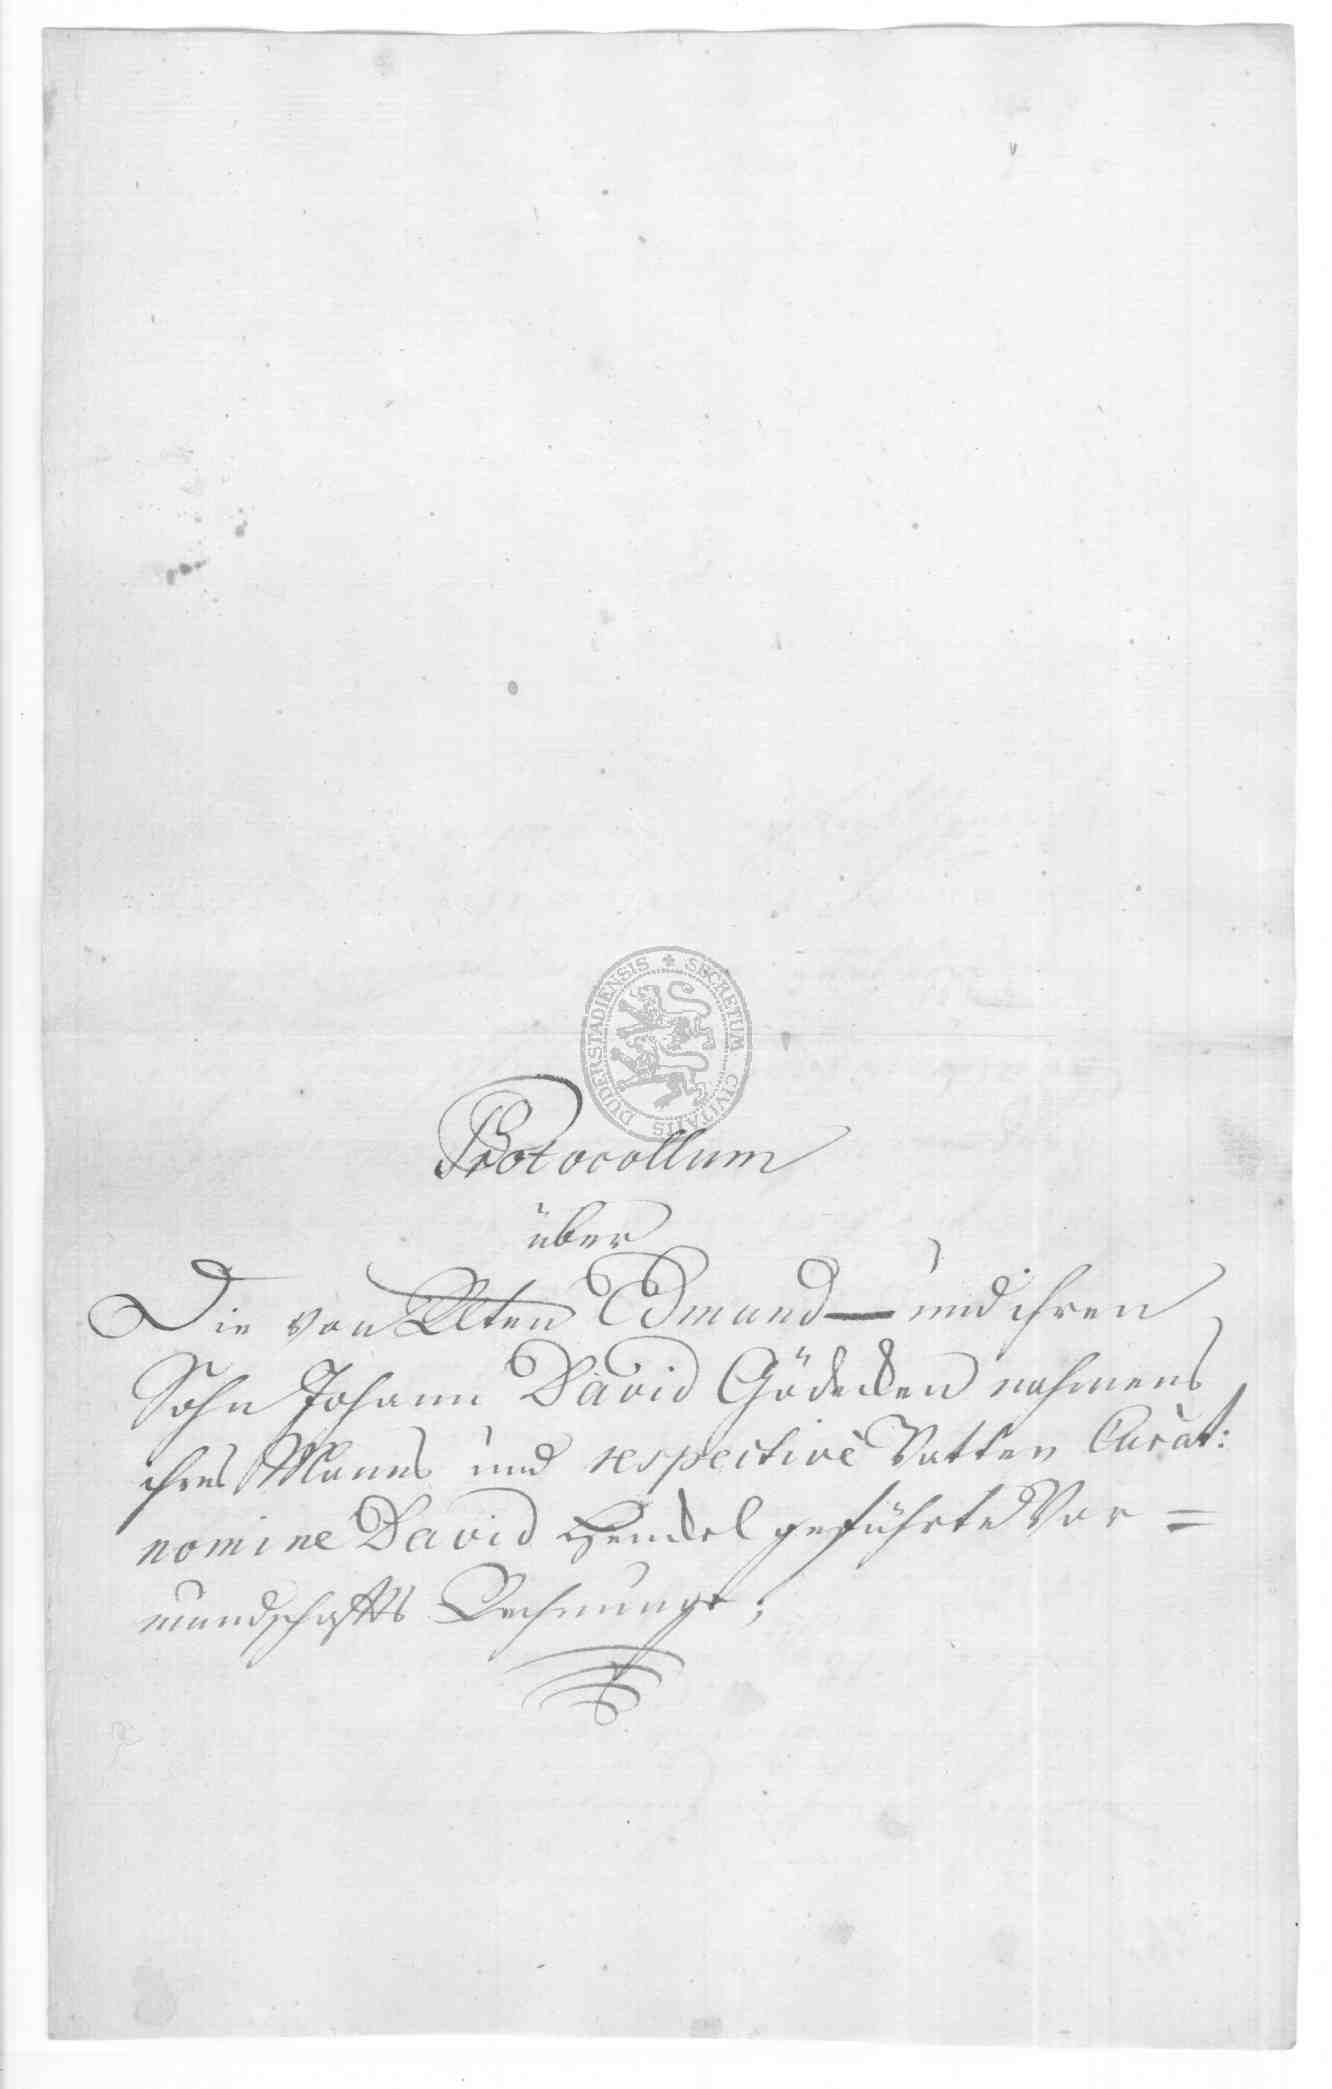 SECRETUM CIVITATIS DUDERSTADIENSIS
Protocollum
über
Die von Edmund — und ihren
Sohn Johann David Gödecken nahmens
ihres Manns und respectivè Vatters Curat:
nomine David Henckel geführte Vor =
mundschaffts Rechnunge;